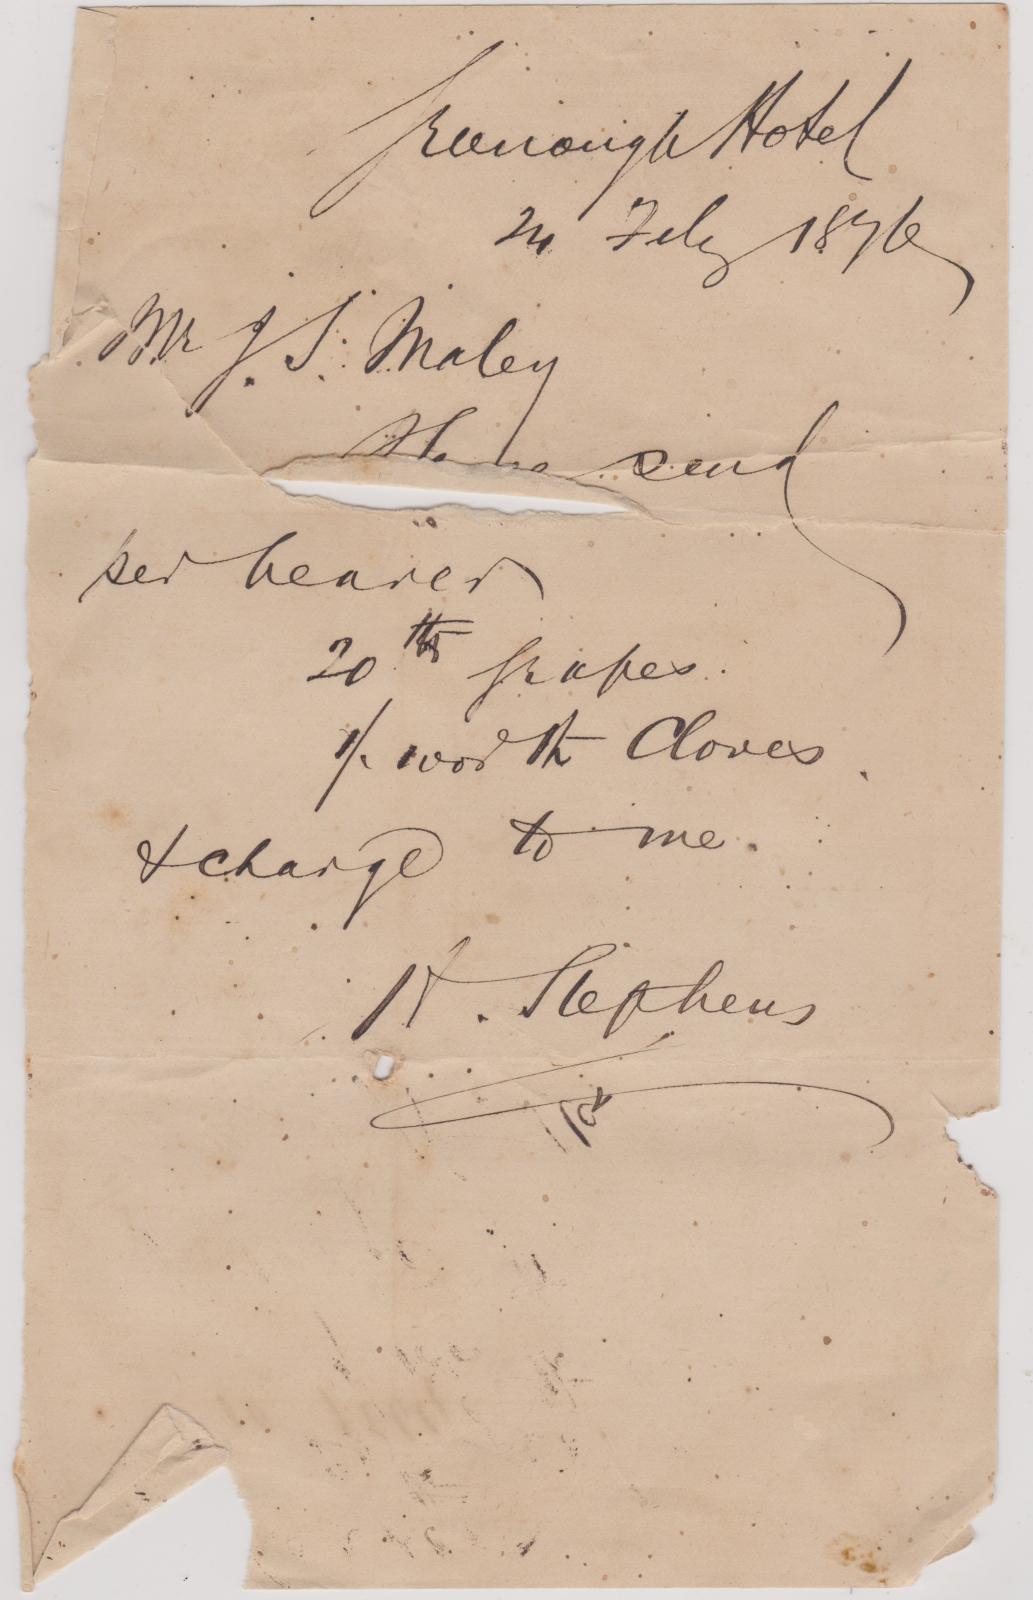 Greenough Hotel
24 Feby 1876
Mr J. S. Maley
Please send
per bearer
20 lbs grapes.
1/- worth Cloves.
& charge to me.
H. Stephens